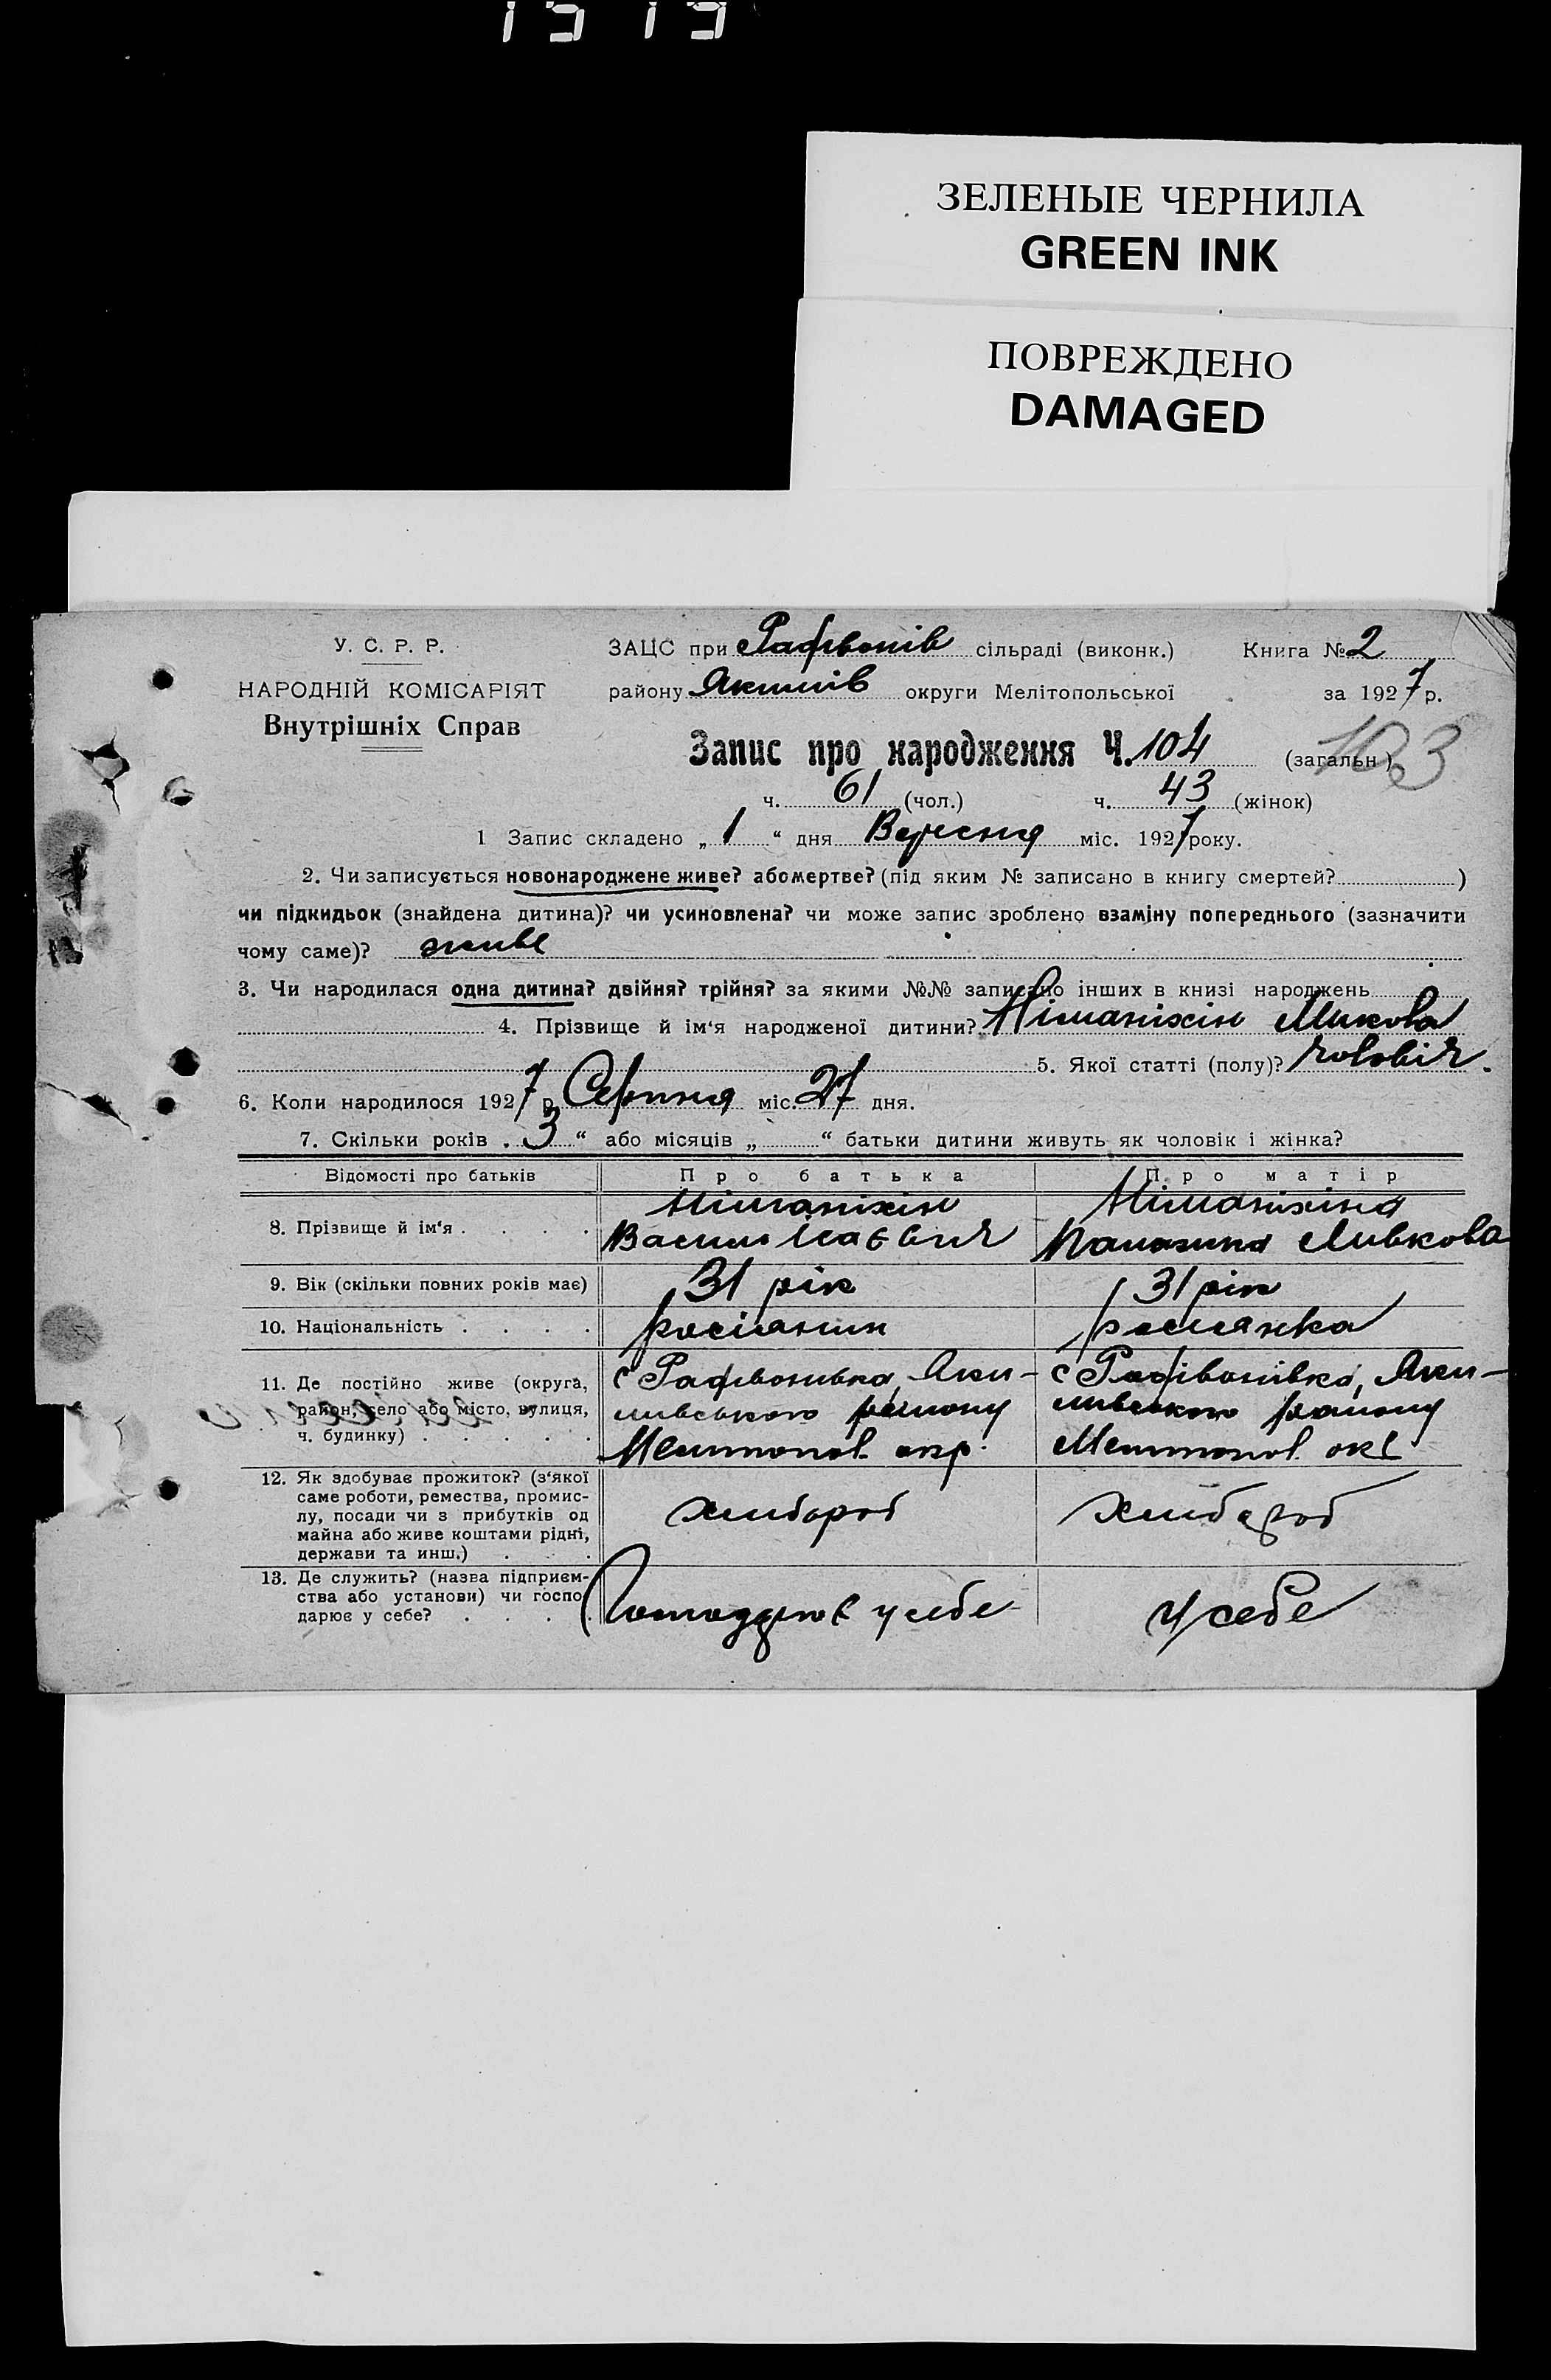 ЗЕЛЕНЫЕ ЧЕРНИЛА
GREEN INK
ПОВРЕЖДЕНО
DAMAGED
У. С. Р. Р.
НАРОДНІЙ КОМІСАРІЯТ
Внутрішніх Справ
ЗАЦС при Рафівонів сільраді (виконк.) Книга № 2
району Якимів округи Мелітопольської за 1927 р.
Запис про народження Ч. 104 (загальн.) 103
ч. 61 (чол.) ч. 43 (жінок)
1 Запис складено „ 1 “ дня Вересня міс. 1927 року.
2. Чи записується новонароджене живе? або мертве? (під яким № записано в книгу смертей? )
чи підкидьок (знайдена дитина)? чи усиновлена? чи може запис зроблено взаміну попереднього (зазначити
чому саме)? живе
3. Чи народилася одна дитина? двійня? трійня? за якими №№ записано інших в книзі народжень
4. Прізвище й ім‘я народженої дитини? Микола
5. Якої статті (полу)? чоловіч.
6. Коли народилося 1927 р. Серпня міс. 27 дня.
7. Скільки років „ 3 “ або місяців „ “ батьки дитини живуть як чоловік і жінка?
Відомості про батьків Про батька Про матір
8. Прізвище й ім‘я . . . .
9. Вік (скільки повних років має) 31 рік 31 рік
10. Національність . . . . росіянин росіянка
11. Де постійно живе (округа, с Рафивонивка, Яки- с Рафівонівка, Яки-
район, село або місто, вулиця, мивського району мивського району
ч. будинку) . . . . . Мелитопол. окр. Мелитопол. окр
12. Як здобуває прожиток? (з‘якої
саме роботи, ремества, промис-
лу, посади чи з прибутків од хлибороб хлибороб
майна або живе коштами рідні,
держави та инш.) . . .
13. Де служить? (назва підприєм-
ства або установи) чи госпо- Господарює у себе у себе
дарює у себе? . . . .